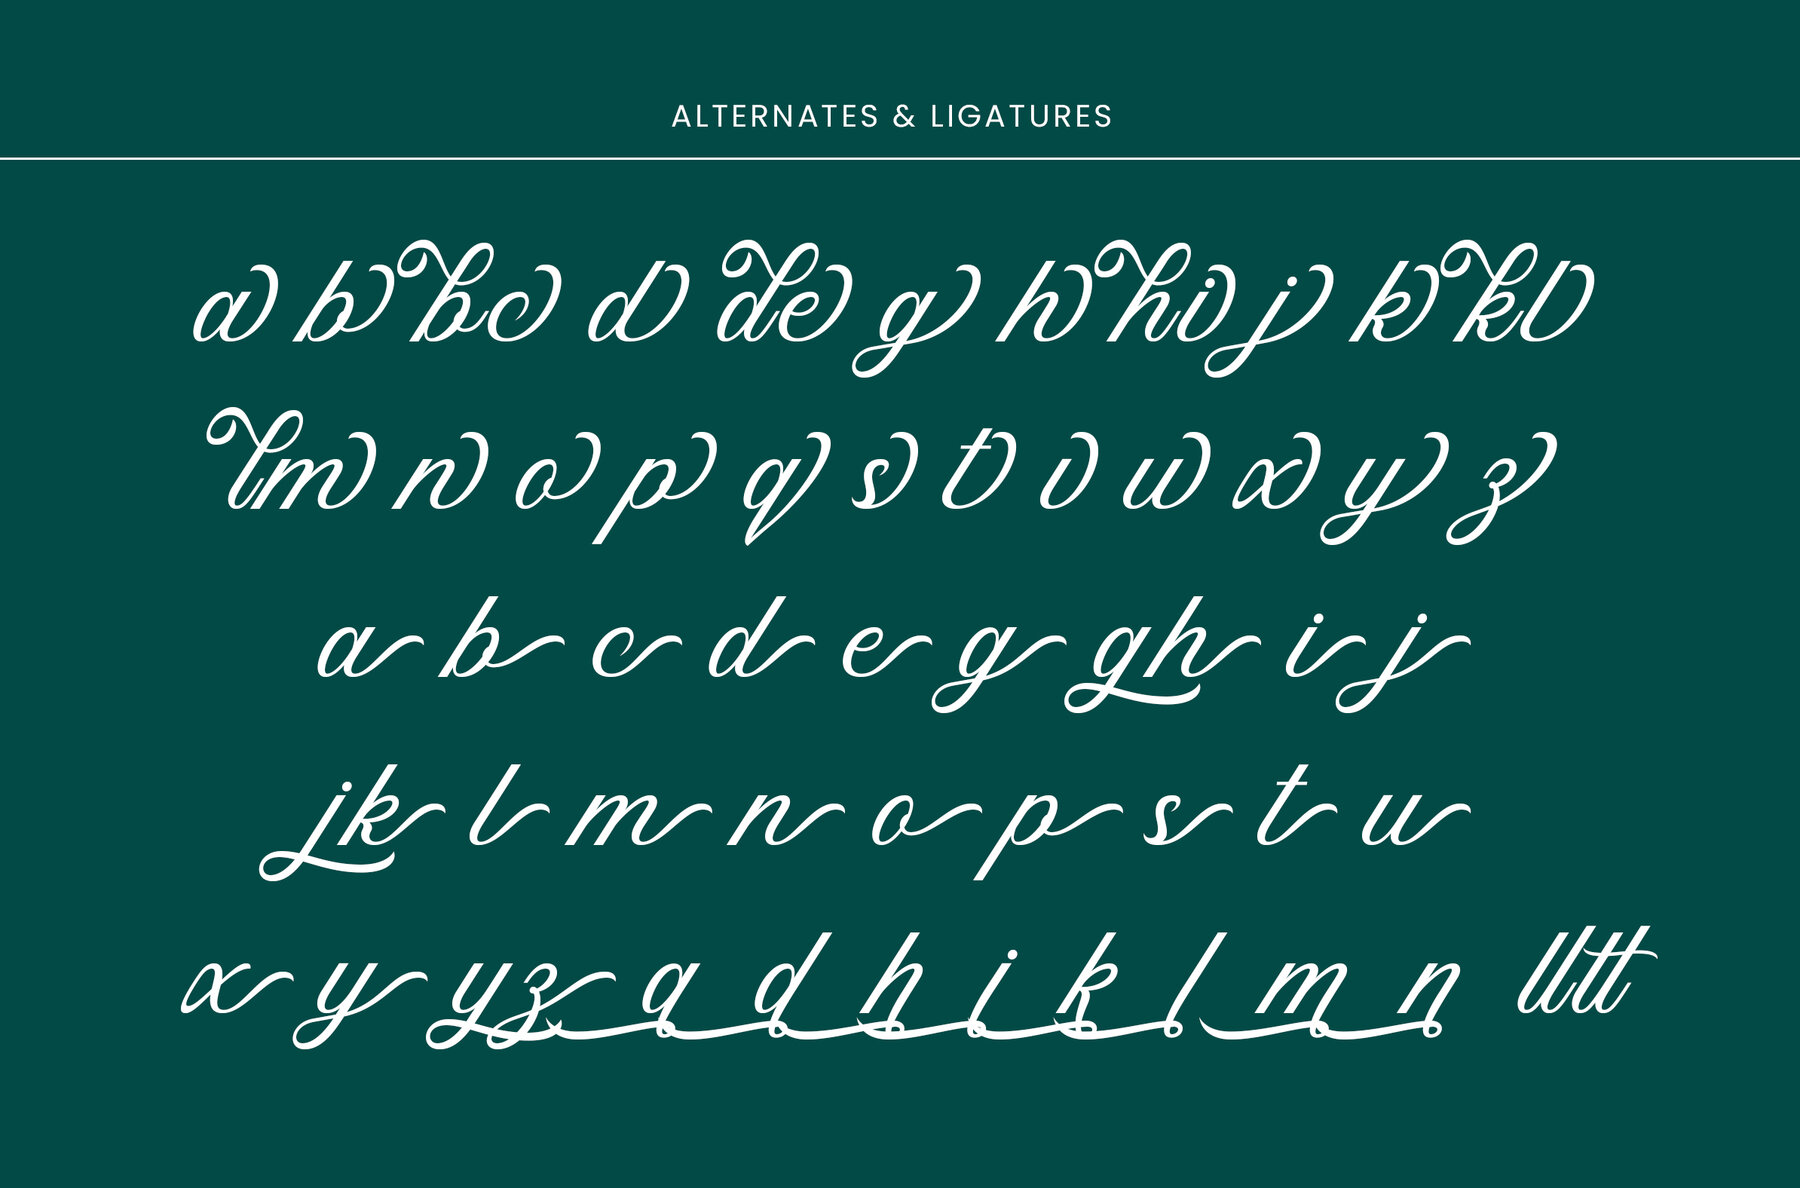 ALTERNATES & LIGATURES
a b b c d d e g h h i j k k l
l m n o p q s t u w x y z
a b c d e g g h i j
j k l m n o p s t u
x y y z a d h i k l m n ll tt